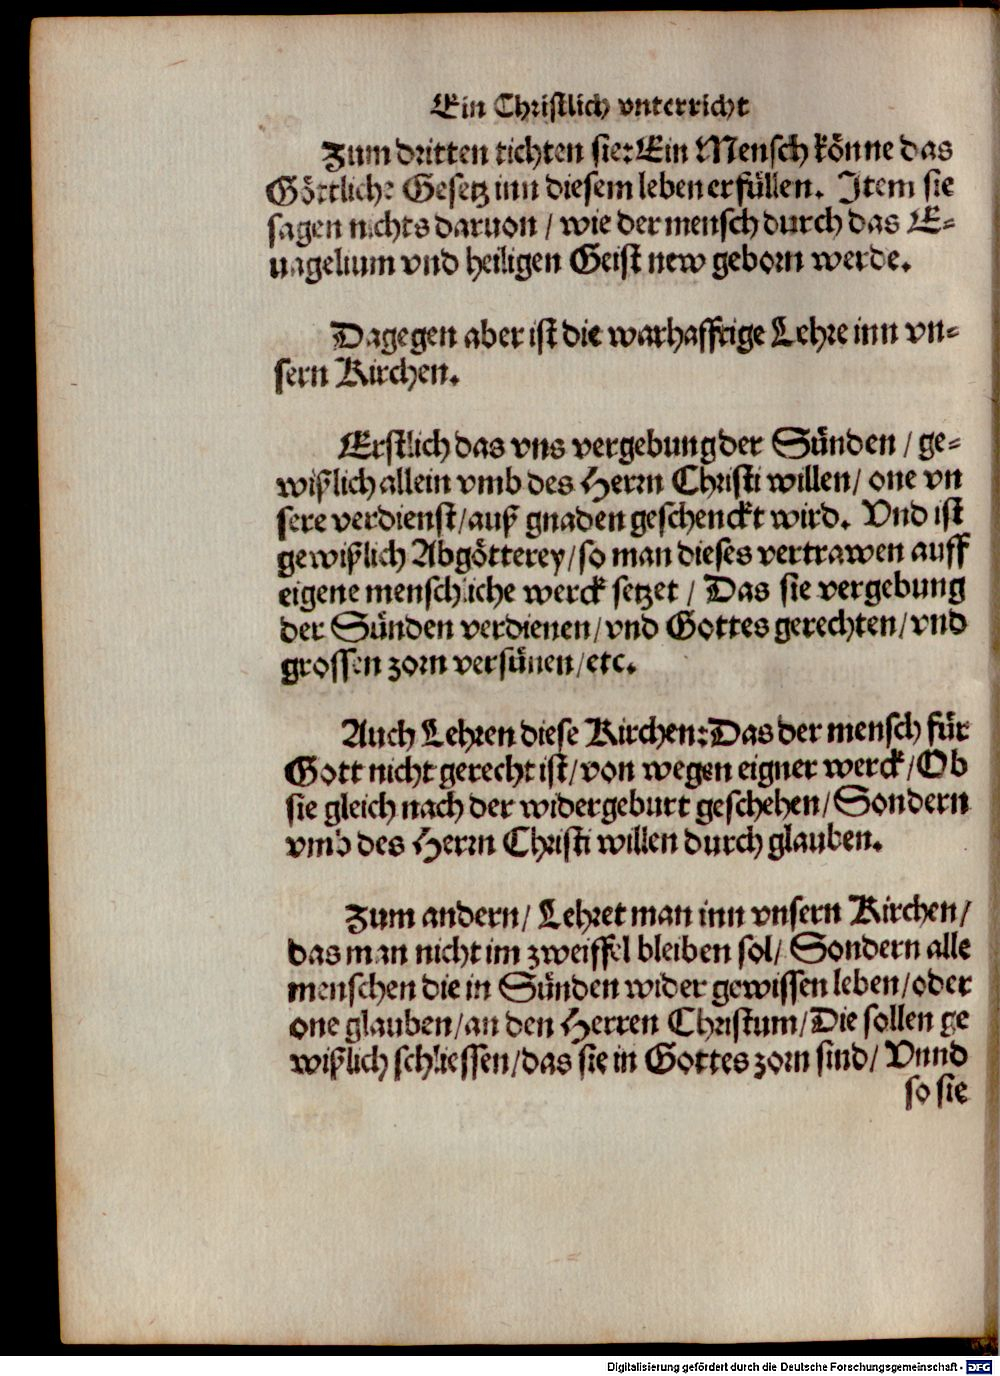 Ein Christlich vnterricht
Zum dritten tichten sie: Ein Mensch könne das
Göttliche Gesetz inn diesem leben erfüllen. Item sie
sagen nichts daruon / wie der mensch durch das E-
uagelium vnd heiligen Geist new geborn werde.
Dagegen aber ist die warhafftige Lehre inn vn-
sern Kirchen.
Erstlich das vns vergebung der Sünden / ge-
wißlich allein vmb des Herrn Christi willen / one vn
sere verdienst / auß gnaden geschenckt wird. Vnd ist
gewißlich Abgötterey / so man dieses vertrawen auff
eigene menschliche werck setzet / Das sie vergebung
der Sünden verdienen / vnd Gottes gerechten / vnd
grossen zorn versünen / etc.
Auch Lehren diese Kirchen: Das der mensch für
Gott nicht gerecht ist / von wegen eigner werck / Ob
sie gleich nach der widergeburt geschehen / Sondern
vmb des Herrn Christi willen durch glauben.
Zum andern / Lehret man inn vnsern Kirchen /
das man nicht im zweiffel bleiben sol / Sondern alle
menschen die in Sünden wider gewissen leben / oder
one glauben / an den Herren Christum / Die sollen ge
wißlich schliessen / das sie in Gottes zorn sind / Vnnd
so sie
Digitalisierung gefördert durch die Deutsche Forschungsgemeinschaft - DFG